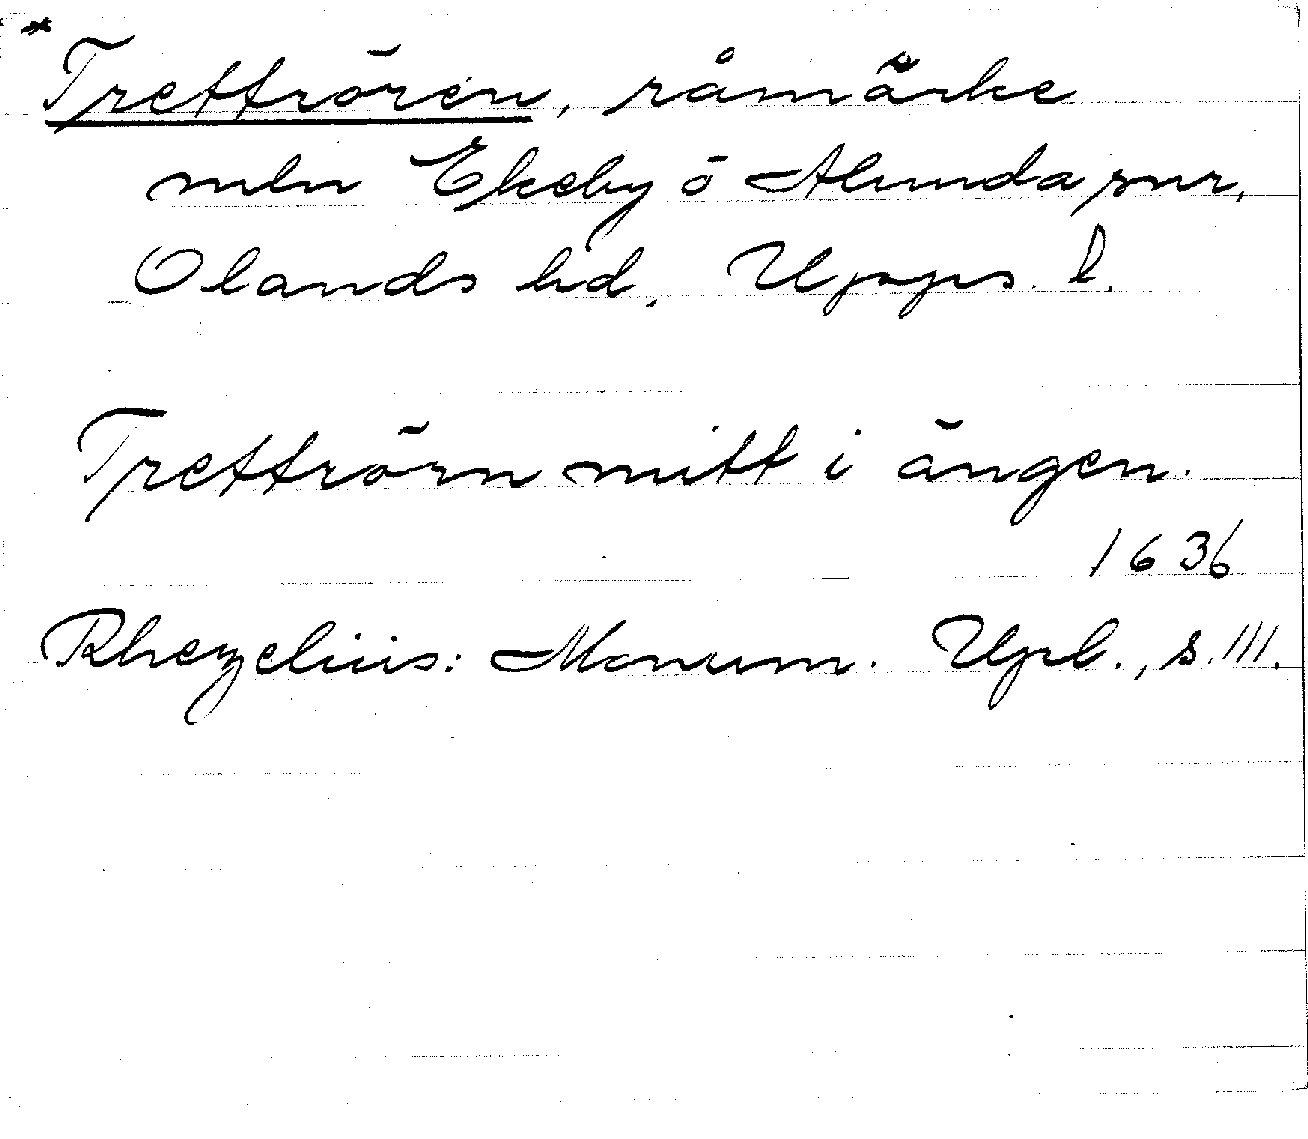 * Trettrören, råmärke
mln Ekeby o Alunda snr,
Olands hd. Upps. l.
Trettrörn mitt i ängen.
1636
Rhezelius: Monum. Upl., s. 111.